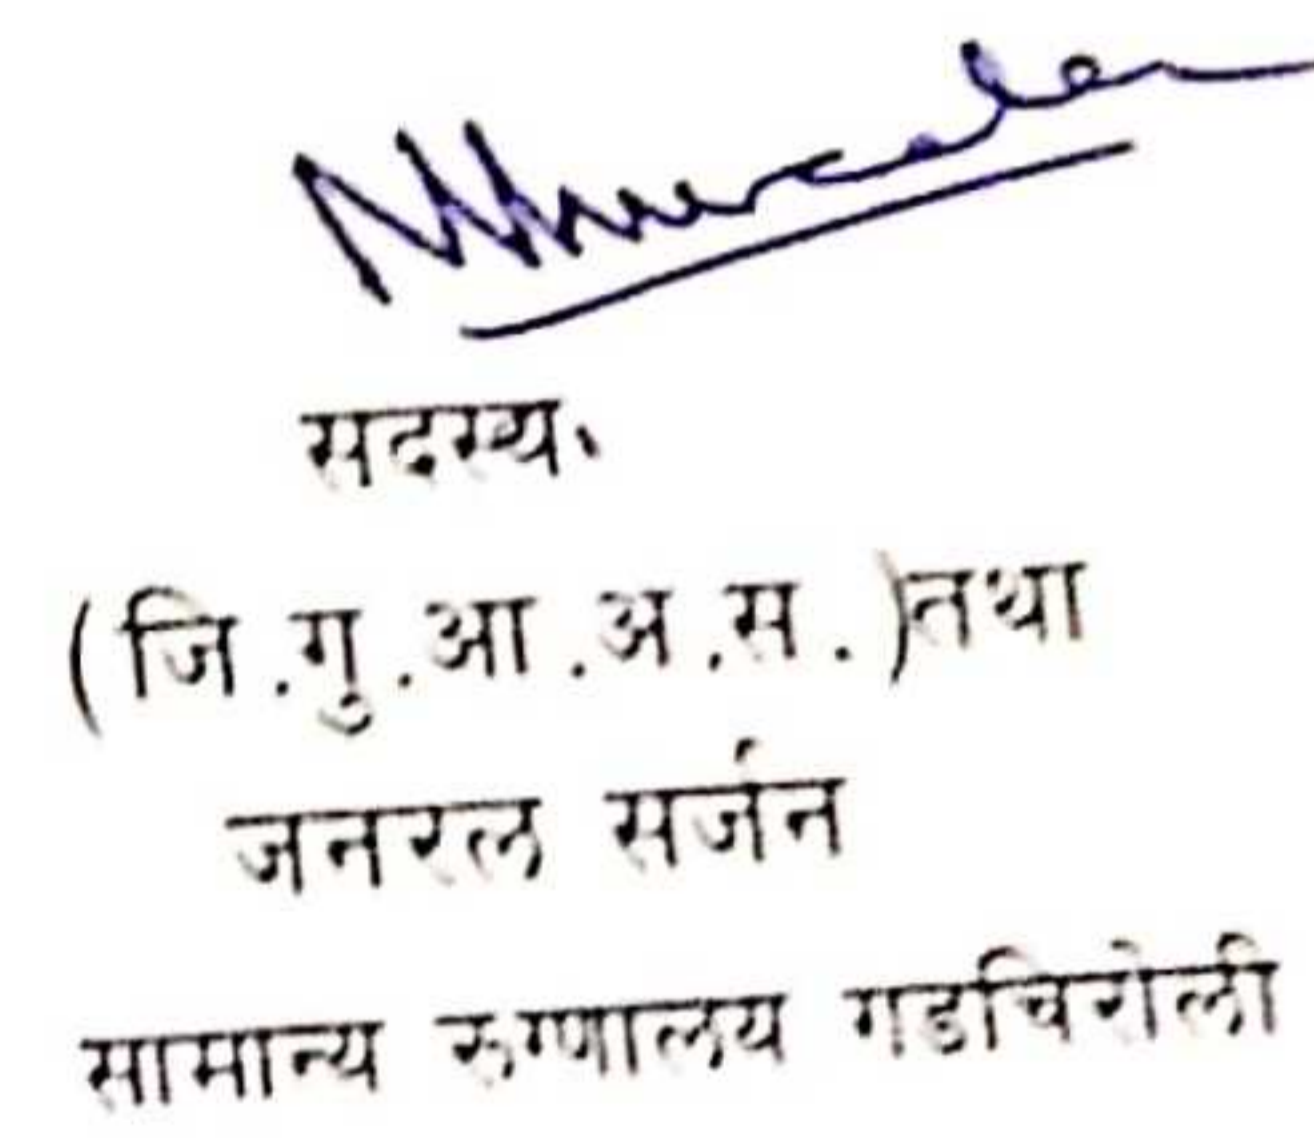 सदस्य,
(जि.गु.आ.अ.स.)तथा
जनरल सर्जन
सामान्य रुग्णालय गडचिरोली